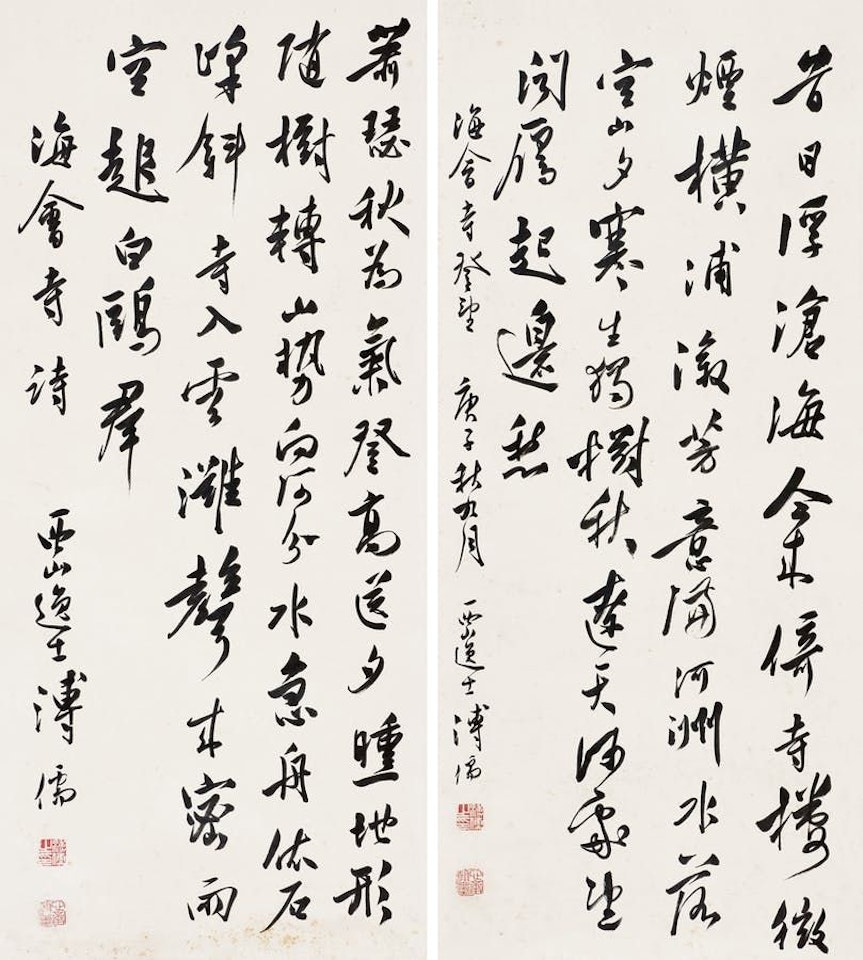 昔日浮滄海今來倚寺樓微
煙橫浦漵芳意滿河洲水落
空山夕寒生獨樹秋天何處望
聞鴈起邊愁
海會寺登望 庚子秋九月 西山逸士溥儒
蕭瑟秋為氣登高送夕曛地形
隨樹轉山勢向河分水急舟依石
峰斜寺入雲灘聲來密雨
空白鷗群
海會寺詩 西山逸士溥儒